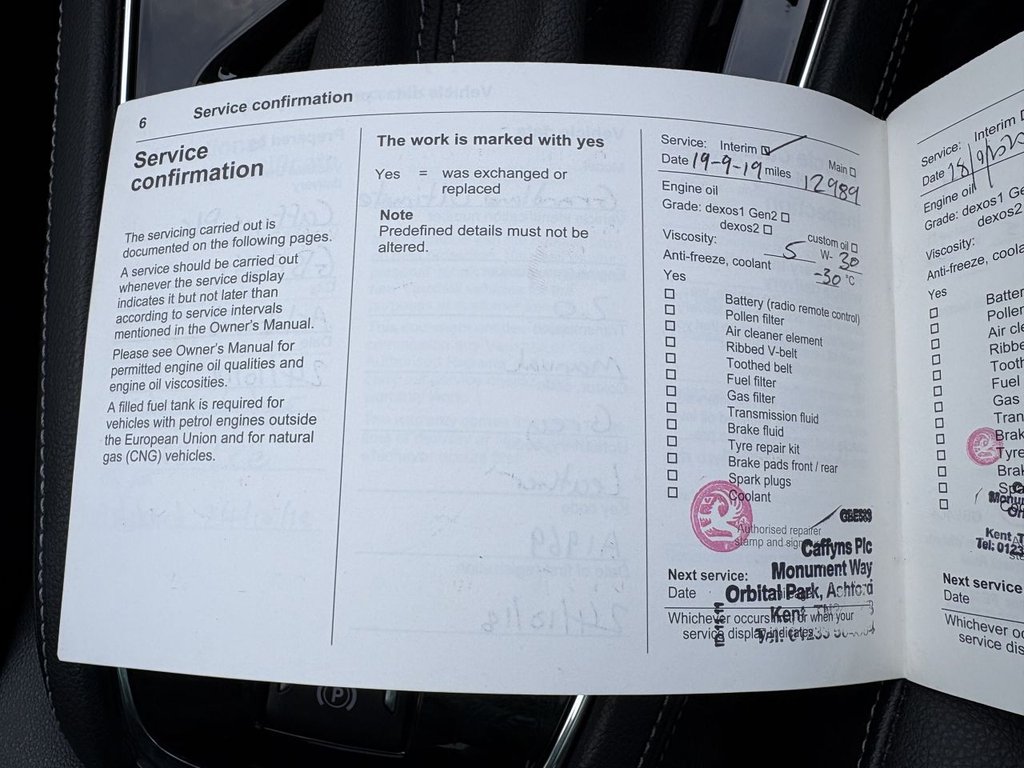 6 Service confirmation
Service
confirmation
The servicing carried out is
documented on the following pages.
A service should be carried out
whenever the service display
indicates it but not later than
according to service intervals
mentioned in the Owner's Manual.
Please see Owner's Manual for
permitted engine oil qualities and
engine oil viscosities.
A filled fuel tank is required for
vehicles with petrol engines outside
the European Union and for natural
gas (CNG) vehicles.
The work is marked with yes
Yes = was exchanged or
replaced
Note
Predefined details must not be
altered.
Service: Interim Main
Date 19-9-19 miles 12989
Engine oil
Grade: dexos1 Gen2
dexos2 custom oil
Viscosity: 5 W- 30
Anti-freeze, coolant -30 °C
Yes
Battery (radio remote control)
Pollen filter
Air cleaner element
Ribbed V-belt
Toothed belt
Fuel filter
Gas filter
Transmission fluid
Brake fluid
Tyre repair kit
Brake pads front / rear
Spark plugs
Coolant
Authorised repairer
stamp and
Caffyns Plc
Monument Way
Orbital Park, Ashford
Kent
Next service:
Date
Whichever occurs or when your
service display indicates
Service: Interim
Date
Engine oil
Grade: dexos1 G
dexos2
Viscosity:
Anti-freeze, coola
Yes
Batter
Pollen
Air cle
Ribbe
Tooth
Fuel
Gas
Tran
Brak
Tyre
Brak
Kent
Tel: 0123
Next service
Date
Whichever oc
service dis